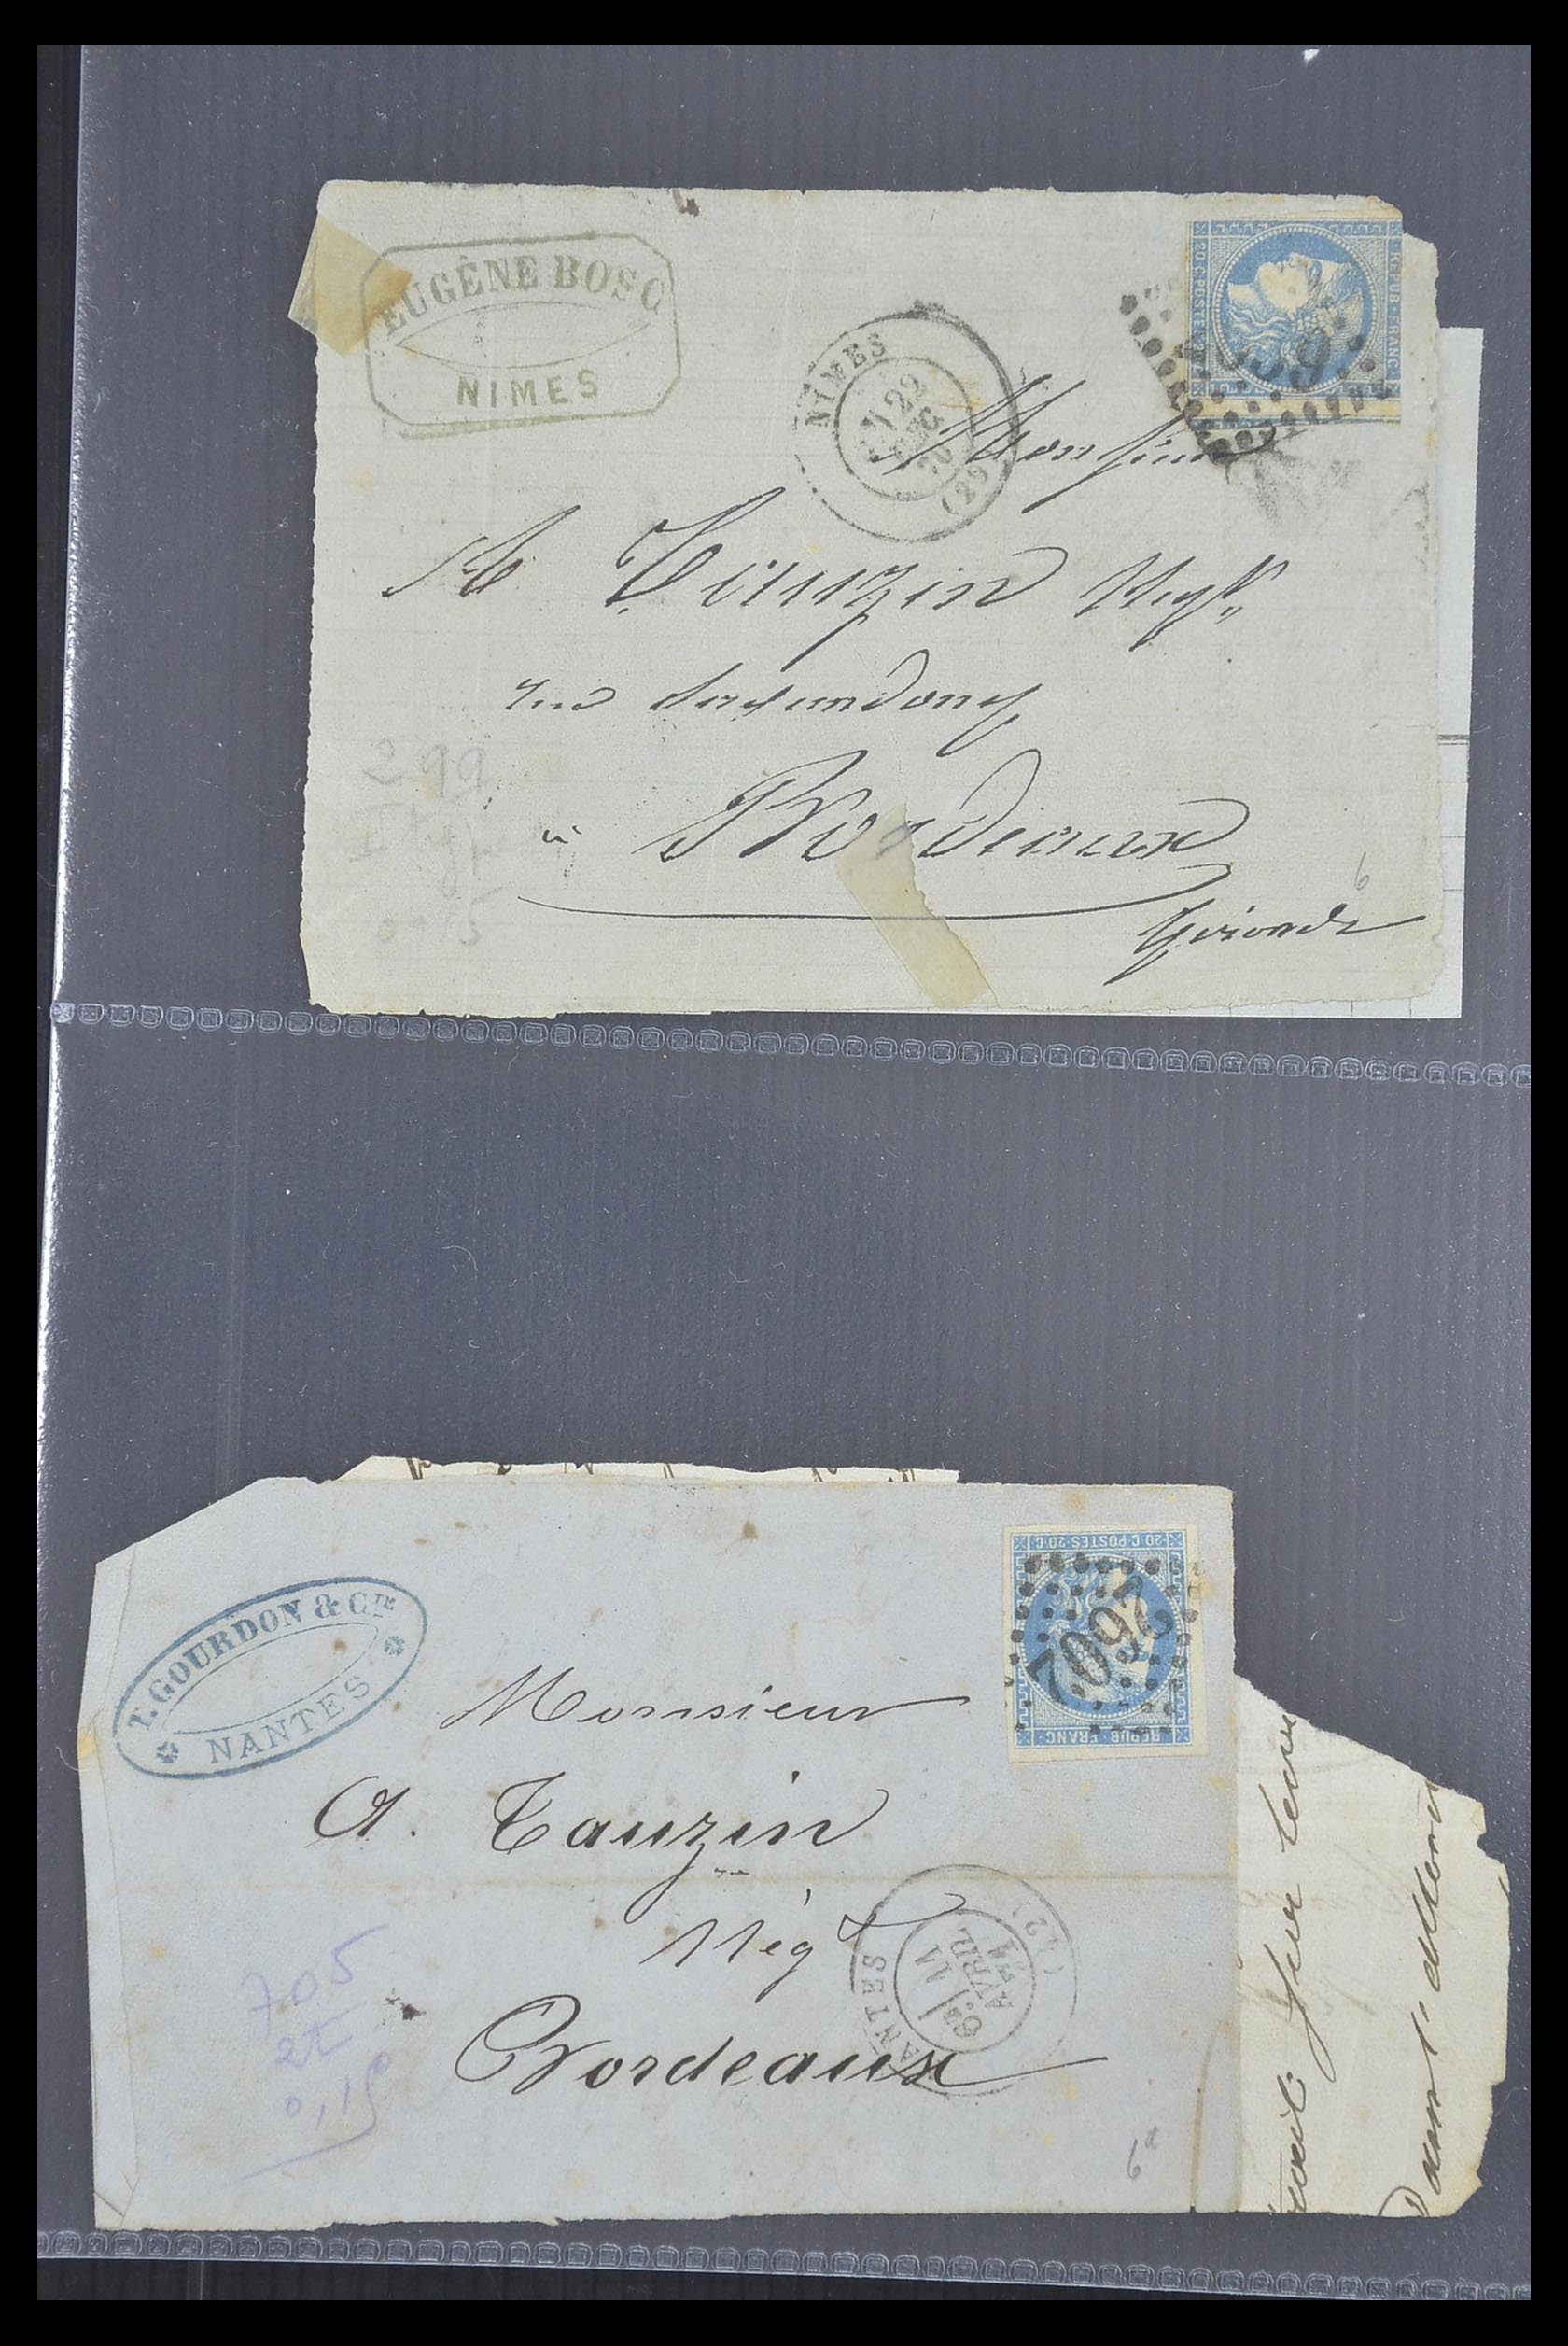 EUGÈNE BOSC
NIMES
20 C POSTES 20 C
REPUB FRANC
NIMES
22
70
(29)
Monsieur
A Tauzin Negt
rue
à Bordeaux
Gironde
299
6
T. GOURDON & CIE
NANTES
20 C POSTES 20 C
REPUB FRANC
2602
Monsieur
A. Tauzin
Négt
Bordeaux
NANTES
6E 11 AVRIL 71
(42)
705
2t
0,15
6a